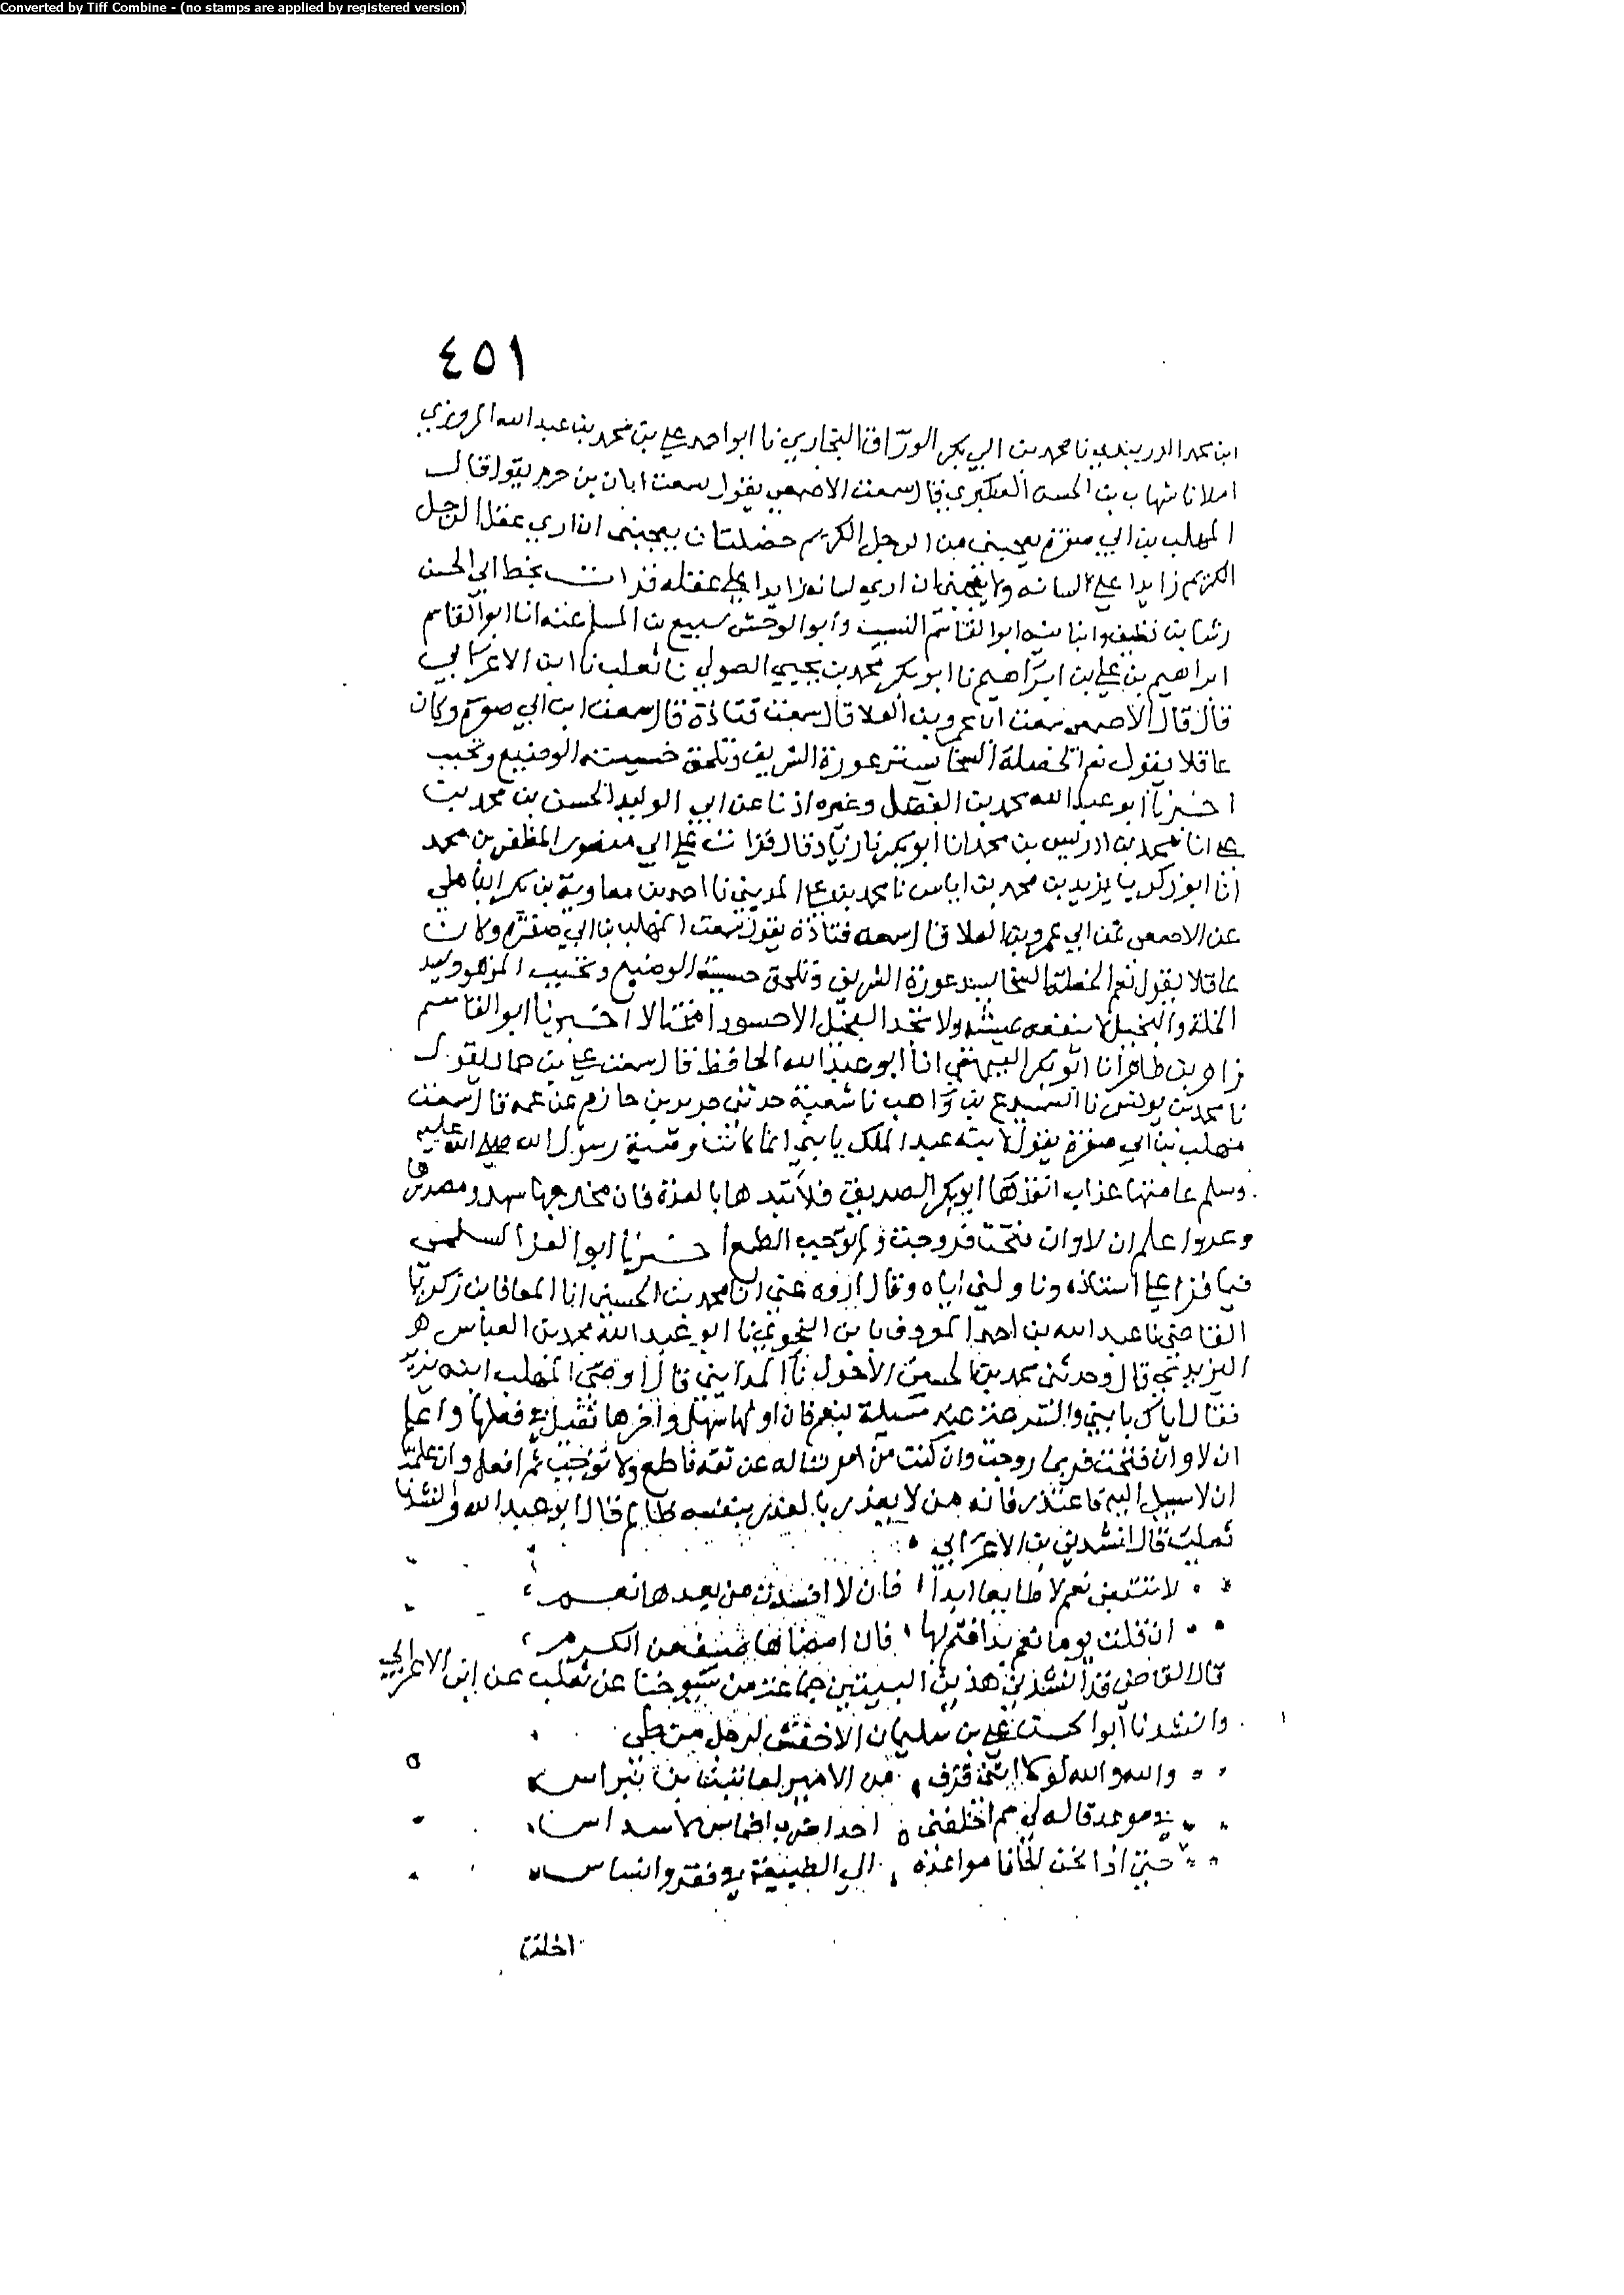 Converted by Tiff Combine - (no stamps are applied by registered version)
٤٥١
ابن محمد الدربندي نا محمد بن ابي بكر الوراق البخاري نا ابو احمد علي بن محمد بن عبد الله المروزي
املانا شهاب بن الحسن العكبري قال سمعت الاصمعي يقول سمعت ابان بن جرير يقول قال
المهلب بن ابي صفرة يعجبني من الرجل الكريم خصلتان يعجبني ان اري عقل الرجل
الكريم زايدا علي لسانه ولا يعجبني ان اري لسانه زايدا علي عقله قرات بخط ابي الحسن
رشا بن نظيف وانبا نيه ابو القاسم النسيب وابو الوحش سبيع بن المسلم عنه انا ابو القاسم
ابراهيم بن علي بن ابراهيم نا ابو بكر محمد بن يحيي الصولي نا ثعلب نا ابن الاعرابي
قال قال الاصمعي سمعت ابا عمرو بن العلا قال سمعت قتادة قال سمعت ابن ابي صفرة وكان
عاقلا يقول نعم الخصلة السخا يستر عورة الشريف وتلحق خسيسة الوضيع وتحبب
اخبرنا ابو عبد الله محمد بن الفضل وغيره اذنا عن ابي الوليد الحسن بن محمد بن
علي انا محمد بن ادريس بن محمد انا ابو بكر نا زياد قال قرات علي ابي منصور المظفر بن محمد
انا ابو زكريا يزيد بن محمد بن اياس نا محمد بن علي المديني نا احمد بن معاوية بن بكر الباهلي
عن الاصمعي عن ابي عمرو بن العلا قال سمعه قتادة يقول سمعت المهلب بن ابي صفرة وكان
عاقلا يقول نعم الخصلة السخا يسد عورة الشريف وتلحق خسيسة الوضيع وتحبب المزهو وسد
الخلة والبخيل لا ينفعه عيشه ولا تجد البخيل الا حسودا مختالا اخبرنا ابو القاسم
زاهر بن طاهر انا ابو بكر البيهقي انا ابو عبد الله الحافظ قال سمعت علي بن حماد يقول
نا محمد بن يونس نا السميدع بن واهب نا شعبة حدثني جرير بن حازم عن عمه قال سمعت
مهلب بن ابي صفرة يقول لابنه عبد الملك يا بني انما كانت وصية رسول الله صلي الله عليه
وسلم عامتها عذاب انفذها ابو بكر الصديق فلا تبد هابا لعزة فان مخارجها سهد ومصدرها
وعروا علم ان لا وان قبحت فروجت ولم توجب الطمع اخبرنا ابو العز السلمي
فيما قرا علي اسناده وناولني اياه وقال اروه عني انا محمد بن الحسين انا المعافا بن زكريا
القاضي نا عبد الله بن احمد المعروف بابن النحوي نا ابو عبد الله محمد بن العباس هر
اليزيدي قال وحدثني محمد بن الحسن الاحول نا المدايني قال اوصي المهلب ابنه يزيد
فقال اياك يا بني والتسرع عند مسيلة بنعم فان اولها سهل واخرها ثقيل في فعلها واعلم
ان لا وان قبحت فربما روجت وان كنت من امر تساله عن ثقة فاطمع ولا توجب ثم افعل وان علمت
ان لا سبيل اليه فاعتذر فانه من لا يعذر بالعذر بنفسه ظالم قال ابو عبد الله وانشدنا
ثعلب قال انشدني بن الاعرابي
لا تتبعن نعم لا طايعا ابدا فان لا افسدت من بعدها نعم
ان قلت يوما نعم بدا فتم لها فان امضاها صنيف من الكرم
قال القاضي قد انشدني هذين البيتين جماعة من شيوخنا عن ثعلب عن ابن الاعرابي
وانشدنا ابو الحسن علي بن سليمان الاخفش لرجل من طي
والله والله لولا انني فرق من الامير لعاتبت بن نبراس
في موعد قاله لي ثم اخلفني اخدا ضرب اخماس لاسداس
حتي اذا نحن الجانا مواعده الي الطبيعة في فقر وانساس
اخلت